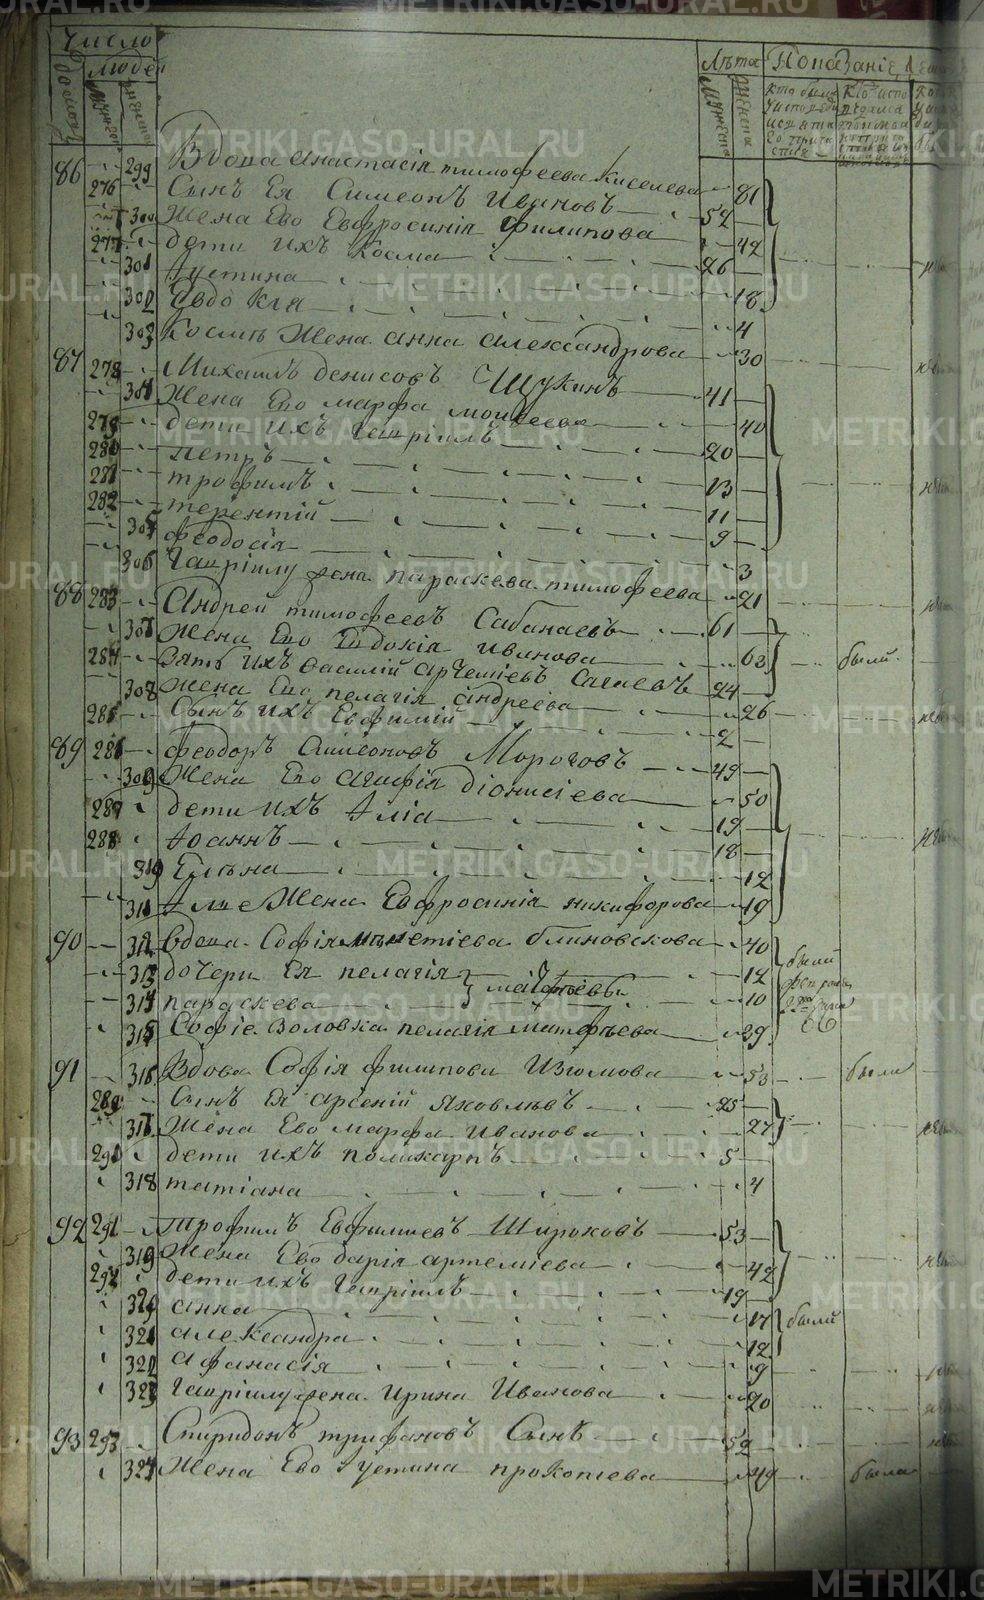 Число
Людей
Лѣта Показаніе
86 299 Вдова Анастасія тимофеева Киселева 81
276 Сынъ Ея Симеонъ Ивановъ 52
300 Жена Ево Евфросинія Филипова 42
277 дети ихъ Косма 26
301 Іустина 18
302 Евдокія 4
303 Космѣ Жена Анна Александрова 30
87 278 Михаилъ Денисовъ Щукинъ 41
304 Жена Ево марфа моисеева 40
279 дети ихъ Гавріилъ 20
280 петръ 13
281 трофимъ 11
282 терентій 9
305 феодосія 3
306 Гавріилу жена параскева тимофеева 21
88 283 Андрей тимофеевъ Сабанаевъ 61
307 Жена Ево Евдокія Иванова 62 были
284 Зять ихъ Василій Артемиевъ 24
308 Жена Ево пелагія Андреева 26
285 Сынъ ихъ Евфимій 2
89 286 феодоръ Симеоновъ Морозовъ 49
309 Жена Ево Агафія Діонисіева 50
287 дети ихъ Ілія 19
288 Іоаннъ 18
310 Елена 12
311 Іліе Жена Евфросинія никифорова 19
90 312 Вдова Софія Блиновскова 40 были
313 дочери Ея пелагія 12
314 параскева 10
315 Софіе Золовка пелагія Матфѣева 29
91 316 Вдова Софія филипова Изюмова 53 была
289 Сынъ Ея Арсеній Яковлѣвъ 25
317 Жена Ево марфа Иванова 27
290 дети ихъ поликарпъ 5
318 татіана 4
92 291 трофимъ Евфимиевъ Широковъ 53
319 Жена Ево дарія артеміева 42
292 дети ихъ Гавріилъ 19
320 анна 17 были
321 александра 12
322 афанасія 9
323 Гавріилу жена Ирина Иванова 20
93 293 Спиридонъ трифановъ Сынъ 52
324 Жена Ево Іустина прокопиева 49 была
METRIKI.GASO-URAL.RU